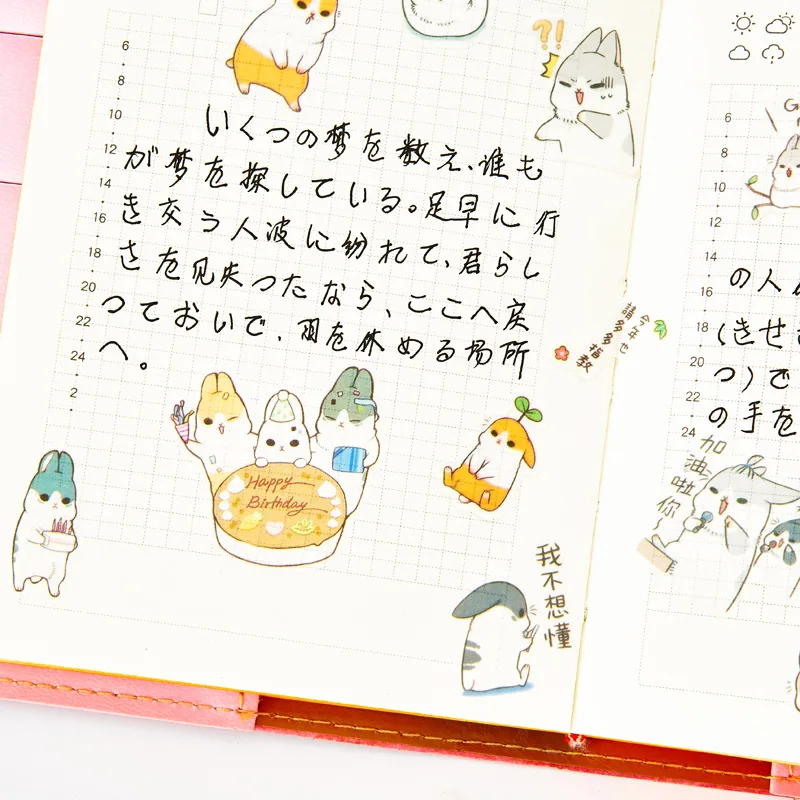 6
8
10
12
14
16
18
20
22
24
2
?!
いくつの夢を数え、誰も
が夢を探している。足早に行
き交う人波に紛れて、君らし
さを見失ったなら、ここへ戻
っておいで、羽を休める場所
へ。
Happy
Birthday
今年也
請多多指教
我不想懂
6
8
10
12
14
16
18
20
22
24
の人
(きせ
つ)で
の手を
加油啦你~